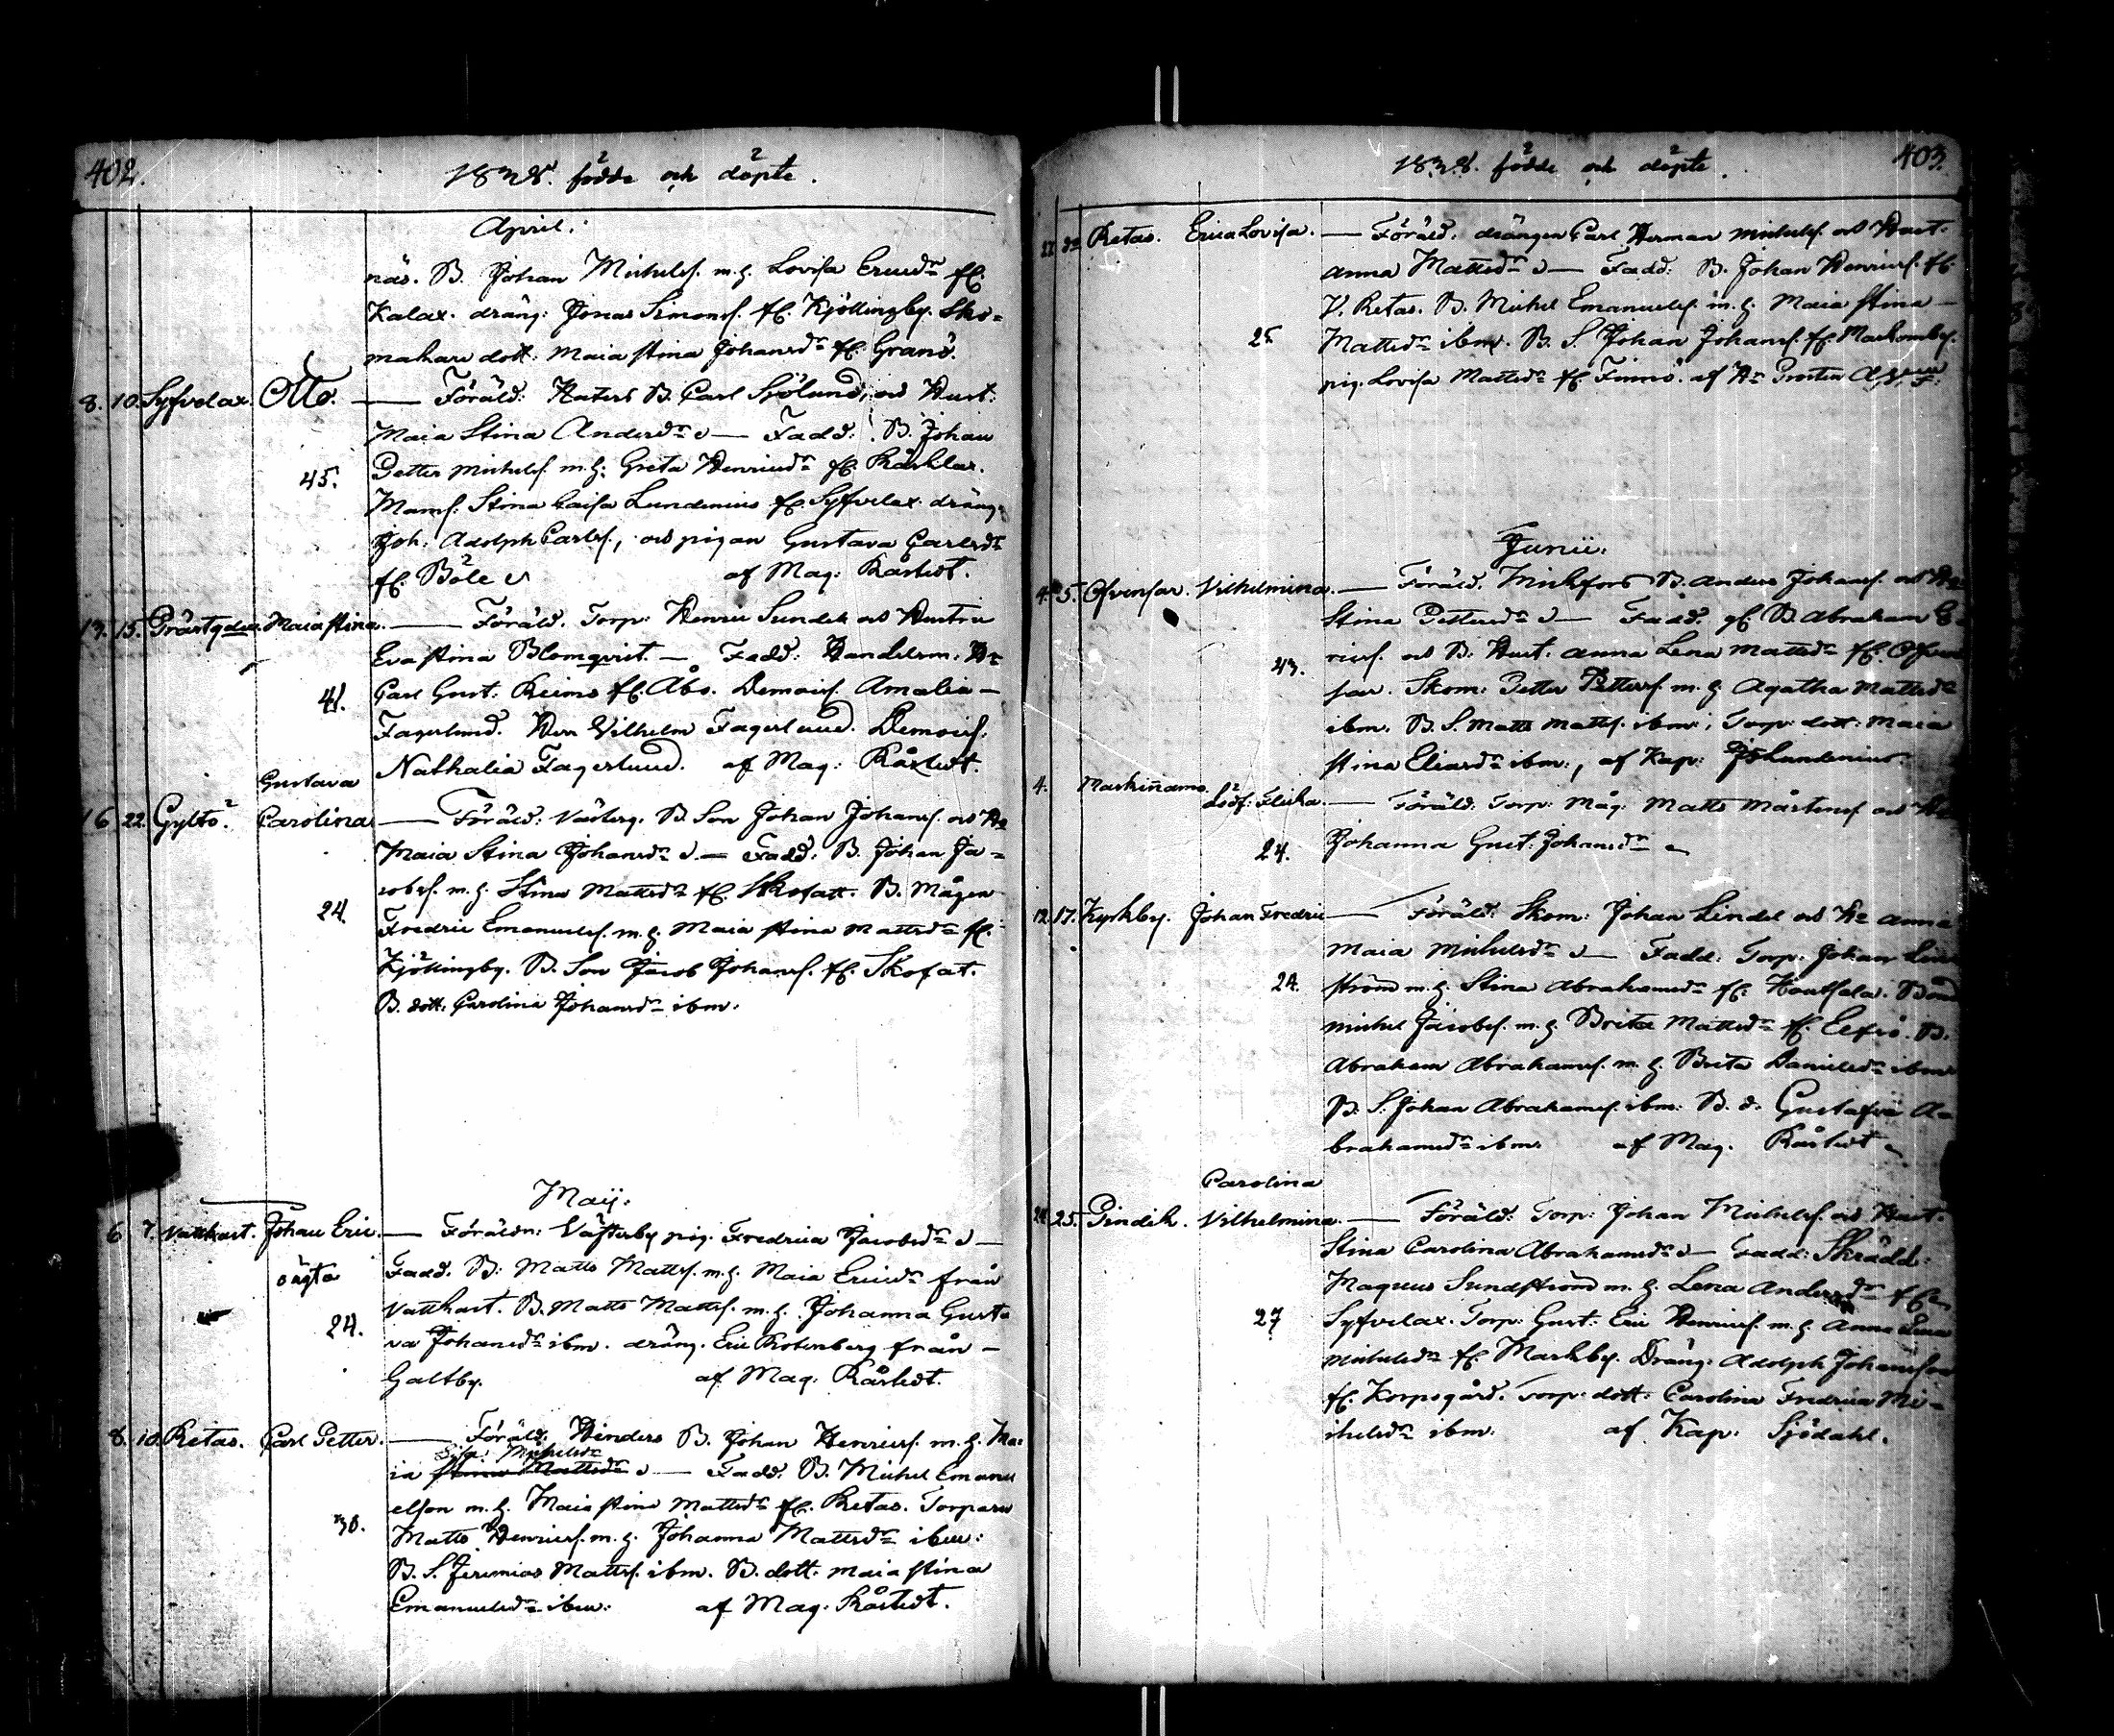 402.
1828. födde och döpte.
April.
näs. B. Johan Michelss. m. h. Lovisa Ericsdr fr.
Kalax. dräng: Jonas Simonss. fr. Kjöllingby. Sko-
makare dott: Maia Stina Johansdr fr. Granö.
8. 10. Syfvelax. Otto. — Föräld: B. Carl Sjölund, och Hust:
Maia Stina Andersdr — Fadd: B. Johan
Petter Michelss. m. h: Greta Henricsdr fr.
45.
Mams: Stina Caisa Lundenius fr. Syfvelax. dräng
Joh. Adolph Carlss., och pigan Gustava Carlsdr
fr. Böle af Mag: Råstedt.
13. 15. Prästgden. Maia Stina. — Föräld. Torp: Henric Sundel och Hustru
Eva Stina Blomqvist. — Fadd: Handelsm. Hr
41.
Carl Gust. Reims fr. Åbo. Demois. Amalia —
Fagerlund. Herr Vilhelm Fagerlund. Demois.
Nathalia Fagerlund. af Mag: Råstedt.
Gustava
16 22. Gyltö. Carolina — Föräld: B. Son Johan Johanss. och Hu
Maia Stina Johansdr — Fadd: B. Johan Ja-
cobss. m. h. Stina Mattsdr fr. Skofatt. B. Mågen
24.
Fredric Emanuelss. m. h. Maia Stina Mattsdr fr.
Kjöllingby. B. Son Jacob Johanss. fr. Skofat.
B. dott: Carolina Johansdr ibm.
Maij.
6 7. Vattkast. Johan Eric. — Föräldn: Västerby pig. Fredrica Jacobsdr —
oägta
Fadd. B: Matts Mattss. m. h. Maia Ericsdr från
Vattkast. B. Matts Mattss. m. h. Johanna Gusta
24.
va Johansdr ibm. dräng. Eric Rotenberg från —
Galtby. af Mag: Råstedt.
8. 10. Retas. Carl Petter. — Föräld. Hinders B. Johan Henricss. m. h. Ma-
Lisa Michelsdr
ia Stina Mattsdr — Fadd. B. Michel Emanu
elsson m. h. Maia Stina Mattsdr fr. Retas. Torparen
30.
Matts Henricss. m. h. Johanna Mattsdr ibm:
B. S. Jeremias Mattss. ibm. B. dott. Maia Stina
Emanuelsdr ibm: af Mag: Råstedt.
403.
1828. födde och döpte.
Retas. Erica Lovisa. — Föräld. drängen Carl Herman Michelss. och Hust.
Anna Mattsdr — Fadd: B. Johan Henricss. fr.
V. Retas. B. Michel Emanuelss. m. h: Maia Stina —
25
Mattsdr ibm. B. S. Johan Johanss. fr. Markomby.
pig. Lovisa Mattsdr fr. Finnö. af Hr Prosten
Junii.
4. 5. Ofvensar. Vilhelmina. — Föräld. B. Anders Johanss. och Hu
Stina Pettersdr — Fadd. B. Abraham E-
43.
ricss. och B. Hust. Anna Lena Mattsdr fr. Ofven
sar. Skom: Petter Petterss. m. h Agatha Mattsdr
ibm. B. S. Matts Mattss. ibm., Torp: dott: Maia
Stina Eliasdr ibm., af Kap: Lundenius
4. Markinamo. Dödf: Flicka. — Föräld: Torp: Måg: Matts Mårtenss. och Hu
24.
Johanna Gust. Johansdr
12. 17. Kyrkby. Johan Fredric — Föräld: Skom: Johan Lindel och Hu Anna
Maia Michelsdr — Fadd: Torp: Johan Lind
24.
ström m. h. Stina Abrahamsdr fr. Houtsala. Bond
Michel Jacobss. m. h. Brita Mattsdr fr. B.
Abraham Abrahamss. m. h. Brita Danielsdr ibm
B. S. Johan Abrahamss. ibm: B. d. Gustafva A-
brahamsdr ibm: af Mag. Råstedt
Carolina
24. 25. Pindik. Vilhelmina. — Föräld: Torp: Johan Michelss. och Hust.
Stina Carolina Abrahamsdr — Fadd: Skrädd:
Magnus Sundström m. h. Lena Andersdr fr.
27
Syfvelax. Torp: Gust: Eric Henricss. m. h. Anna Lena
Michelsdr fr. Markby. Dräng: Adolph Johansson
fr. Korpogård. Torp: dott: Carolina Fredrica Mi-
chelsdr ibm. af Kap: Sjödahl.